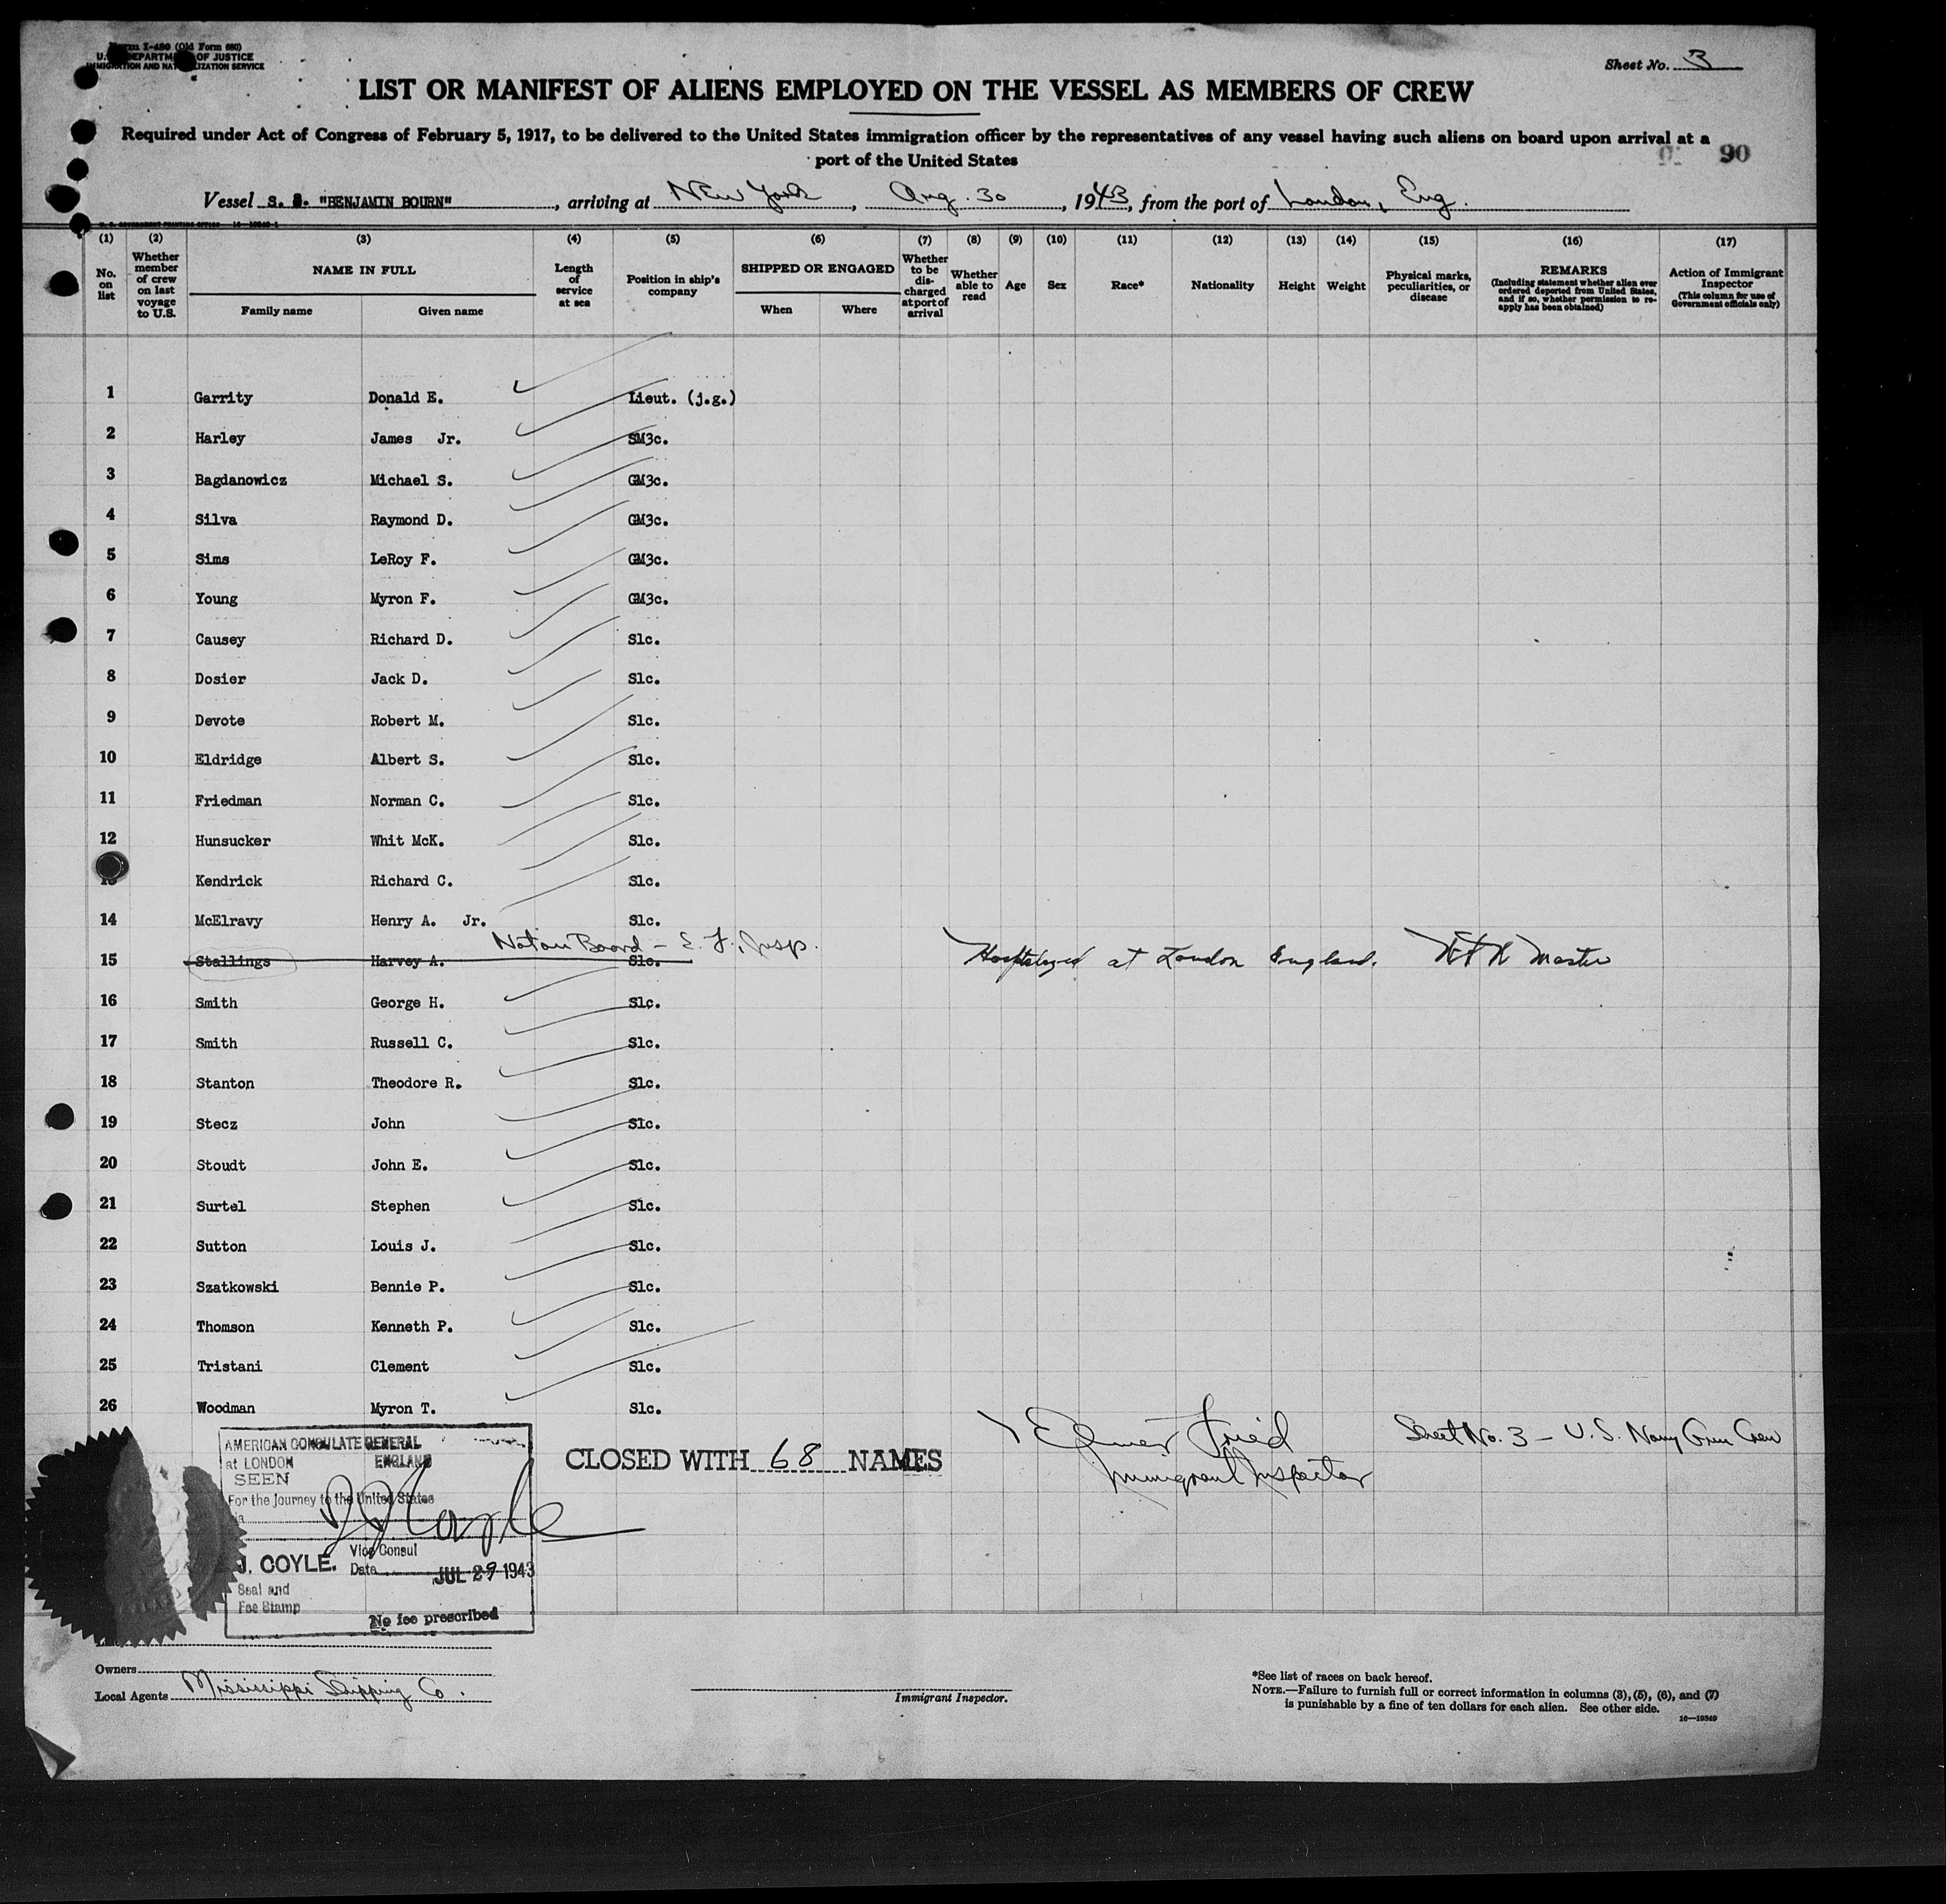 Form I-480 (Old Form 680)
U.S. DEPARTMENT OF JUSTICE
IMMIGRATION AND NATURALIZATION SERVICE
Sheet No. 3
LIST OR MANIFEST OF ALIENS EMPLOYED ON THE VESSEL AS MEMBERS OF CREW
Required under Act of Congress of February 5, 1917, to be delivered to the United States immigration officer by the representatives of any vessel having such aliens on board upon arrival at a
port of the United States
90
Vessel S. S. "BENJAMIN BOURN", arriving at New York, Aug. 30, 1943, from the port of London, Eng.
(1) (2) (3) (4) (5) (6) (7) (8) (9) (10) (11) (12) (13) (14) (15) (16) (17)
No. on list
Whether member of crew on last voyage to U.S.
NAME IN FULL
Family name
Given name
Length of service at sea
Position in ship's company
SHIPPED OR ENGAGED
When
Where
Whether to be discharged at port of arrival
Whether able to read
Age
Sex
Race*
Nationality
Height
Weight
Physical marks, peculiarities, or disease
REMARKS
(Including statement whether alien ever ordered deported from United States, and if so, whether permission to reapply has been obtained)
Action of Immigrant Inspector
(This column for use of Government officials only)
1 Garrity Donald E. Lieut. (j.g.)
2 Harley James Jr. SM3c.
3 Bagdanowicz Michael S. GM3c.
4 Silva Raymond D. GM3c.
5 Sims LeRoy F. GM3c.
6 Young Myron F. GM3c.
7 Causey Richard D. S1c.
8 Dosier Jack D. S1c.
9 Devote Robert M. S1c.
10 Eldridge Albert S. S1c.
11 Friedman Norman C. S1c.
12 Hunsucker Whit McK. S1c.
13 Kendrick Richard C. S1c.
14 McElravy Henry A. Jr. S1c.
Not on Board - E. F., Insp.
15 Stallings Harvey A. S1c. Hospitalized at London England. Master
16 Smith George H. S1c.
17 Smith Russell C. S1c.
18 Stanton Theodore R. S1c.
19 Stecz John S1c.
20 Stoudt John E. S1c.
21 Surtel Stephen S1c.
22 Sutton Louis J. S1c.
23 Szatkowski Bennie P. S1c.
24 Thomson Kenneth P. S1c.
25 Tristani Clement S1c.
26 Woodman Myron T. S1c.
AMERICAN CONSULATE GENERAL
at LONDON ENGLAND
SEEN
For the journey to the United States
CLOSED WITH 68 NAMES
Elmer Fried
Immigrant Inspector
Sheet No. 3 - U.S. Navy Gun Crew
J. COYLE.
Vice Consul
Date JUL 29 1943
Seal and
Fee Stamp
No fee prescribed
Owners
Local Agents Mississippi Shipping Co.
Immigrant Inspector.
*See list of races on back hereof.
NOTE.—Failure to furnish full or correct information in columns (3), (5), (6), and (7)
is punishable by a fine of ten dollars for each alien. See other side.
16—19349